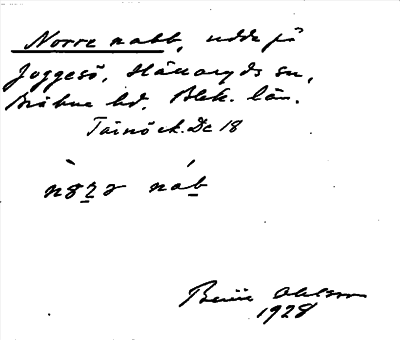 Norre nabb, udde på
Joggesö, Hällaryds sn,
Bräkne hd, Blek. län.
Tärnö ek. Dc 18
nab
Ohlsson
1928